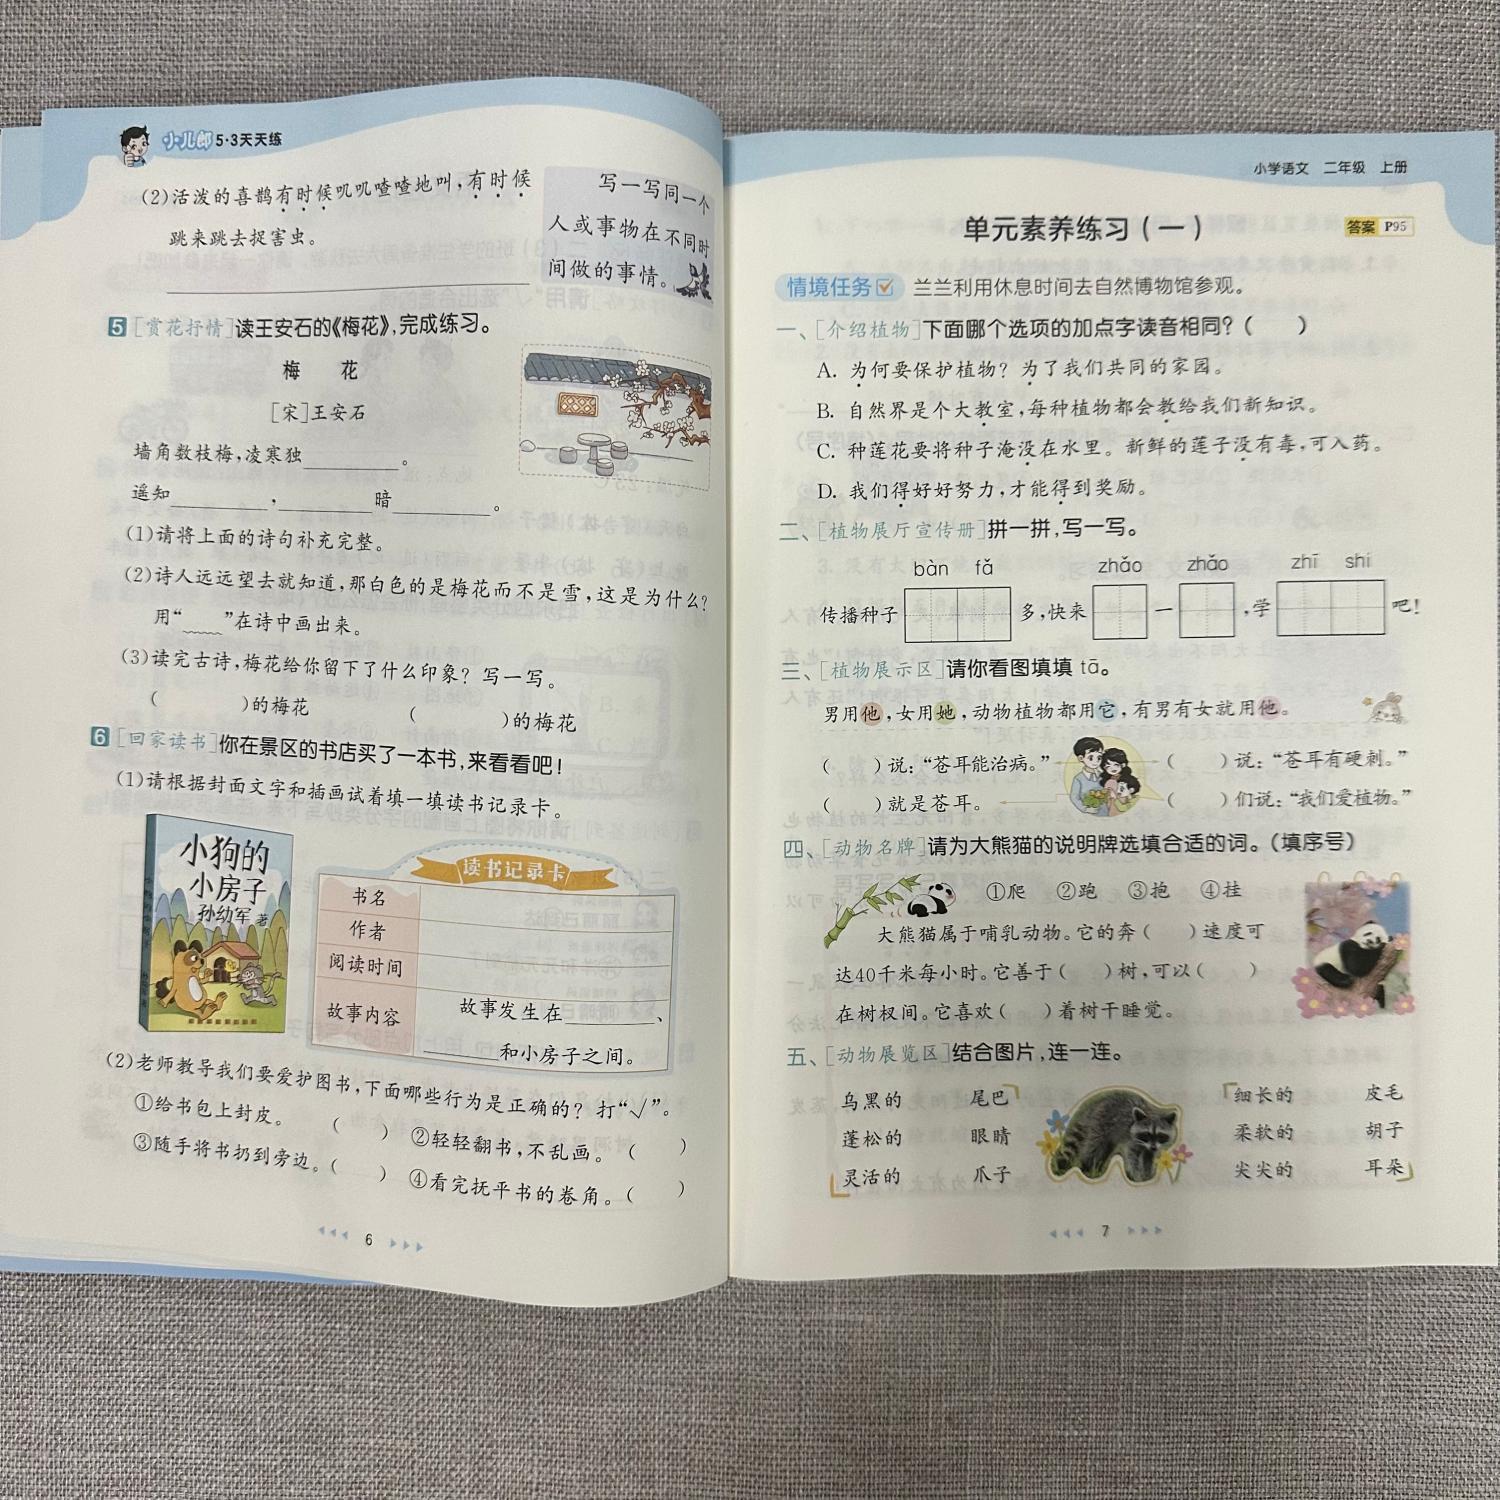 小儿郎 5·3天天练
(2)活泼的喜鹊有时候叽叽喳喳地叫,有时候
跳来跳去捉害虫。
写一写同一个
人或事物在不同时
间做的事情。
5 [赏花抒情]读王安石的《梅花》,完成练习。
梅 花
[宋]王安石
墙角数枝梅,凌寒独________。
遥知________,________暗________。
(1)请将上面的诗句补充完整。
(2)诗人远远望去就知道,那白色的是梅花而不是雪,这是为什么?
用“﹏﹏”在诗中画出来。
(3)读完古诗,梅花给你留下了什么印象?写一写。
( )的梅花 ( )的梅花
6 [回家读书]你在景区的书店买了一本书,来看看吧!
(1)请根据封面文字和插画试着填一填读书记录卡。
小狗的
小房子
孙幼军 著
读书记录卡
书名
作者
阅读时间
故事内容 故事发生在________、
________和小房子之间。
(2)老师教导我们要爱护图书,下面哪些行为是正确的?打“√”。
①给书包上封皮。 ( ) ②轻轻翻书,不乱画。 ( )
③随手将书扔到旁边。( ) ④看完抚平书的卷角。( )
6
小学语文 二年级 上册
单元素养练习(一)
答案 P95
情境任务 兰兰利用休息时间去自然博物馆参观。
一、[介绍植物]下面哪个选项的加点字读音相同?( )
A. 为何要保护植物?为了我们共同的家园。
B. 自然界是个大教室,每种植物都会教给我们新知识。
C. 种莲花要将种子淹没在水里。新鲜的莲子没有毒,可入药。
D. 我们得好好努力,才能得到奖励。
二、[植物展厅宣传册]拼一拼,写一写。
bàn fǎ zhǎo zhǎo zhī shi
传播种子 多,快来 一 ,学 吧!
三、[植物展示区]请你看图填填 tā。
男用他,女用她,动物植物都用它,有男有女就用他。
( )说:“苍耳能治病。” ( )说:“苍耳有硬刺。”
( )就是苍耳。 ( )们说:“我们爱植物。”
四、[动物名牌]请为大熊猫的说明牌选填合适的词。(填序号)
①爬 ②跑 ③抱 ④挂
大熊猫属于哺乳动物。它的奔( )速度可
达40千米每小时。它善于( )树,可以( )
在树杈间。它喜欢( )着树干睡觉。
五、[动物展览区]结合图片,连一连。
乌黑的 尾巴 细长的 皮毛
蓬松的 眼睛 柔软的 胡子
灵活的 爪子 尖尖的 耳朵
7